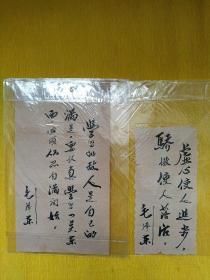 虛心使人進步，
驕傲使人落後。
毛澤東
學習的敵人是自己的
滿足，要認真學習一點東
西必須從不自滿開始。
毛澤東